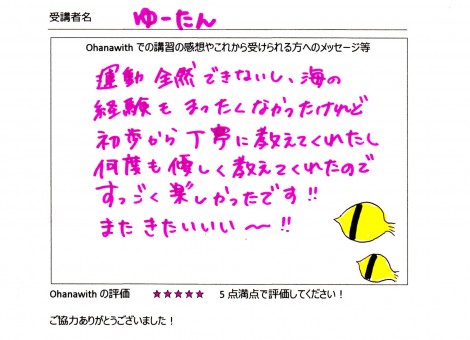 受講者名 ゆーたん
Ohanawith での講習の感想やこれから受けられる方へのメッセージ等
運動全然できないし、海の
経験もまったくなかったけれど
初歩から丁寧に教えてくれたし
何度も優しく教えてくれたので
すっごく楽しかったです!!
またきたいいい〜!!
Ohanawith の評価 ★★★★★ 5 点満点で評価してください！
ご協力ありがとうございました！